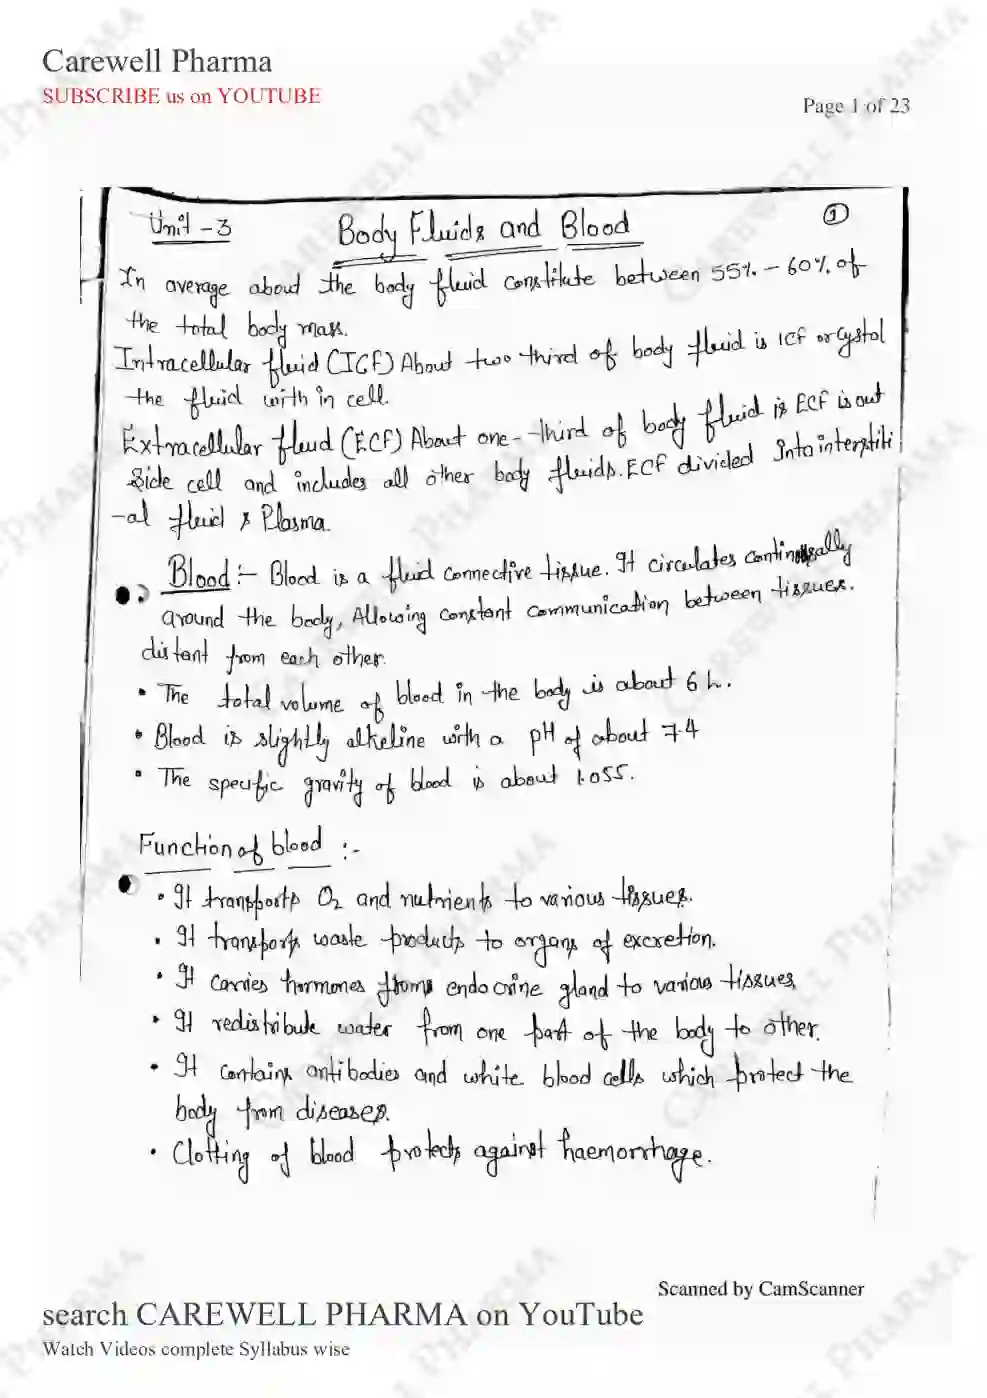 Carewell Pharma
SUBSCRIBE us on YOUTUBE
Page 1 of 23
Unit - 3
Body Fluids and Blood
1
In average about the body fluid constitute between 55% - 60% of
the total body mass.
Intracellular fluid (ICF) About two third of body fluid is ICF or Cystol
the fluid with in cell.
Extracellular fluid (ECF) About one-third of body fluid is ECF is out
Side cell and includes all other body fluids. ECF divided Into interstiti
-al fluid & Plasma.
Blood :- Blood is a fluid connective tissue. It circulates continously
around the body, Allowing constant communication between tissues.
distant from each other.
• The total volume of blood in the body is about 6 L.
• Blood is slightly alkeline with a pH of about 7.4
• The specific gravity of blood is about 1.055.
Function of blood :-
• It transports O2 and nutrients to various tissues.
• It transports waste products to organs of excretion.
• It carries hormones from endocrine gland to various tissues
• It redistribute water from one part of the body to other.
• It contains antibodies and white blood cells which protect the
body from diseases.
• Clotting of blood protects against haemorrhage.
Scanned by CamScanner
search CAREWELL PHARMA on YouTube
Watch Videos complete Syllabus wise